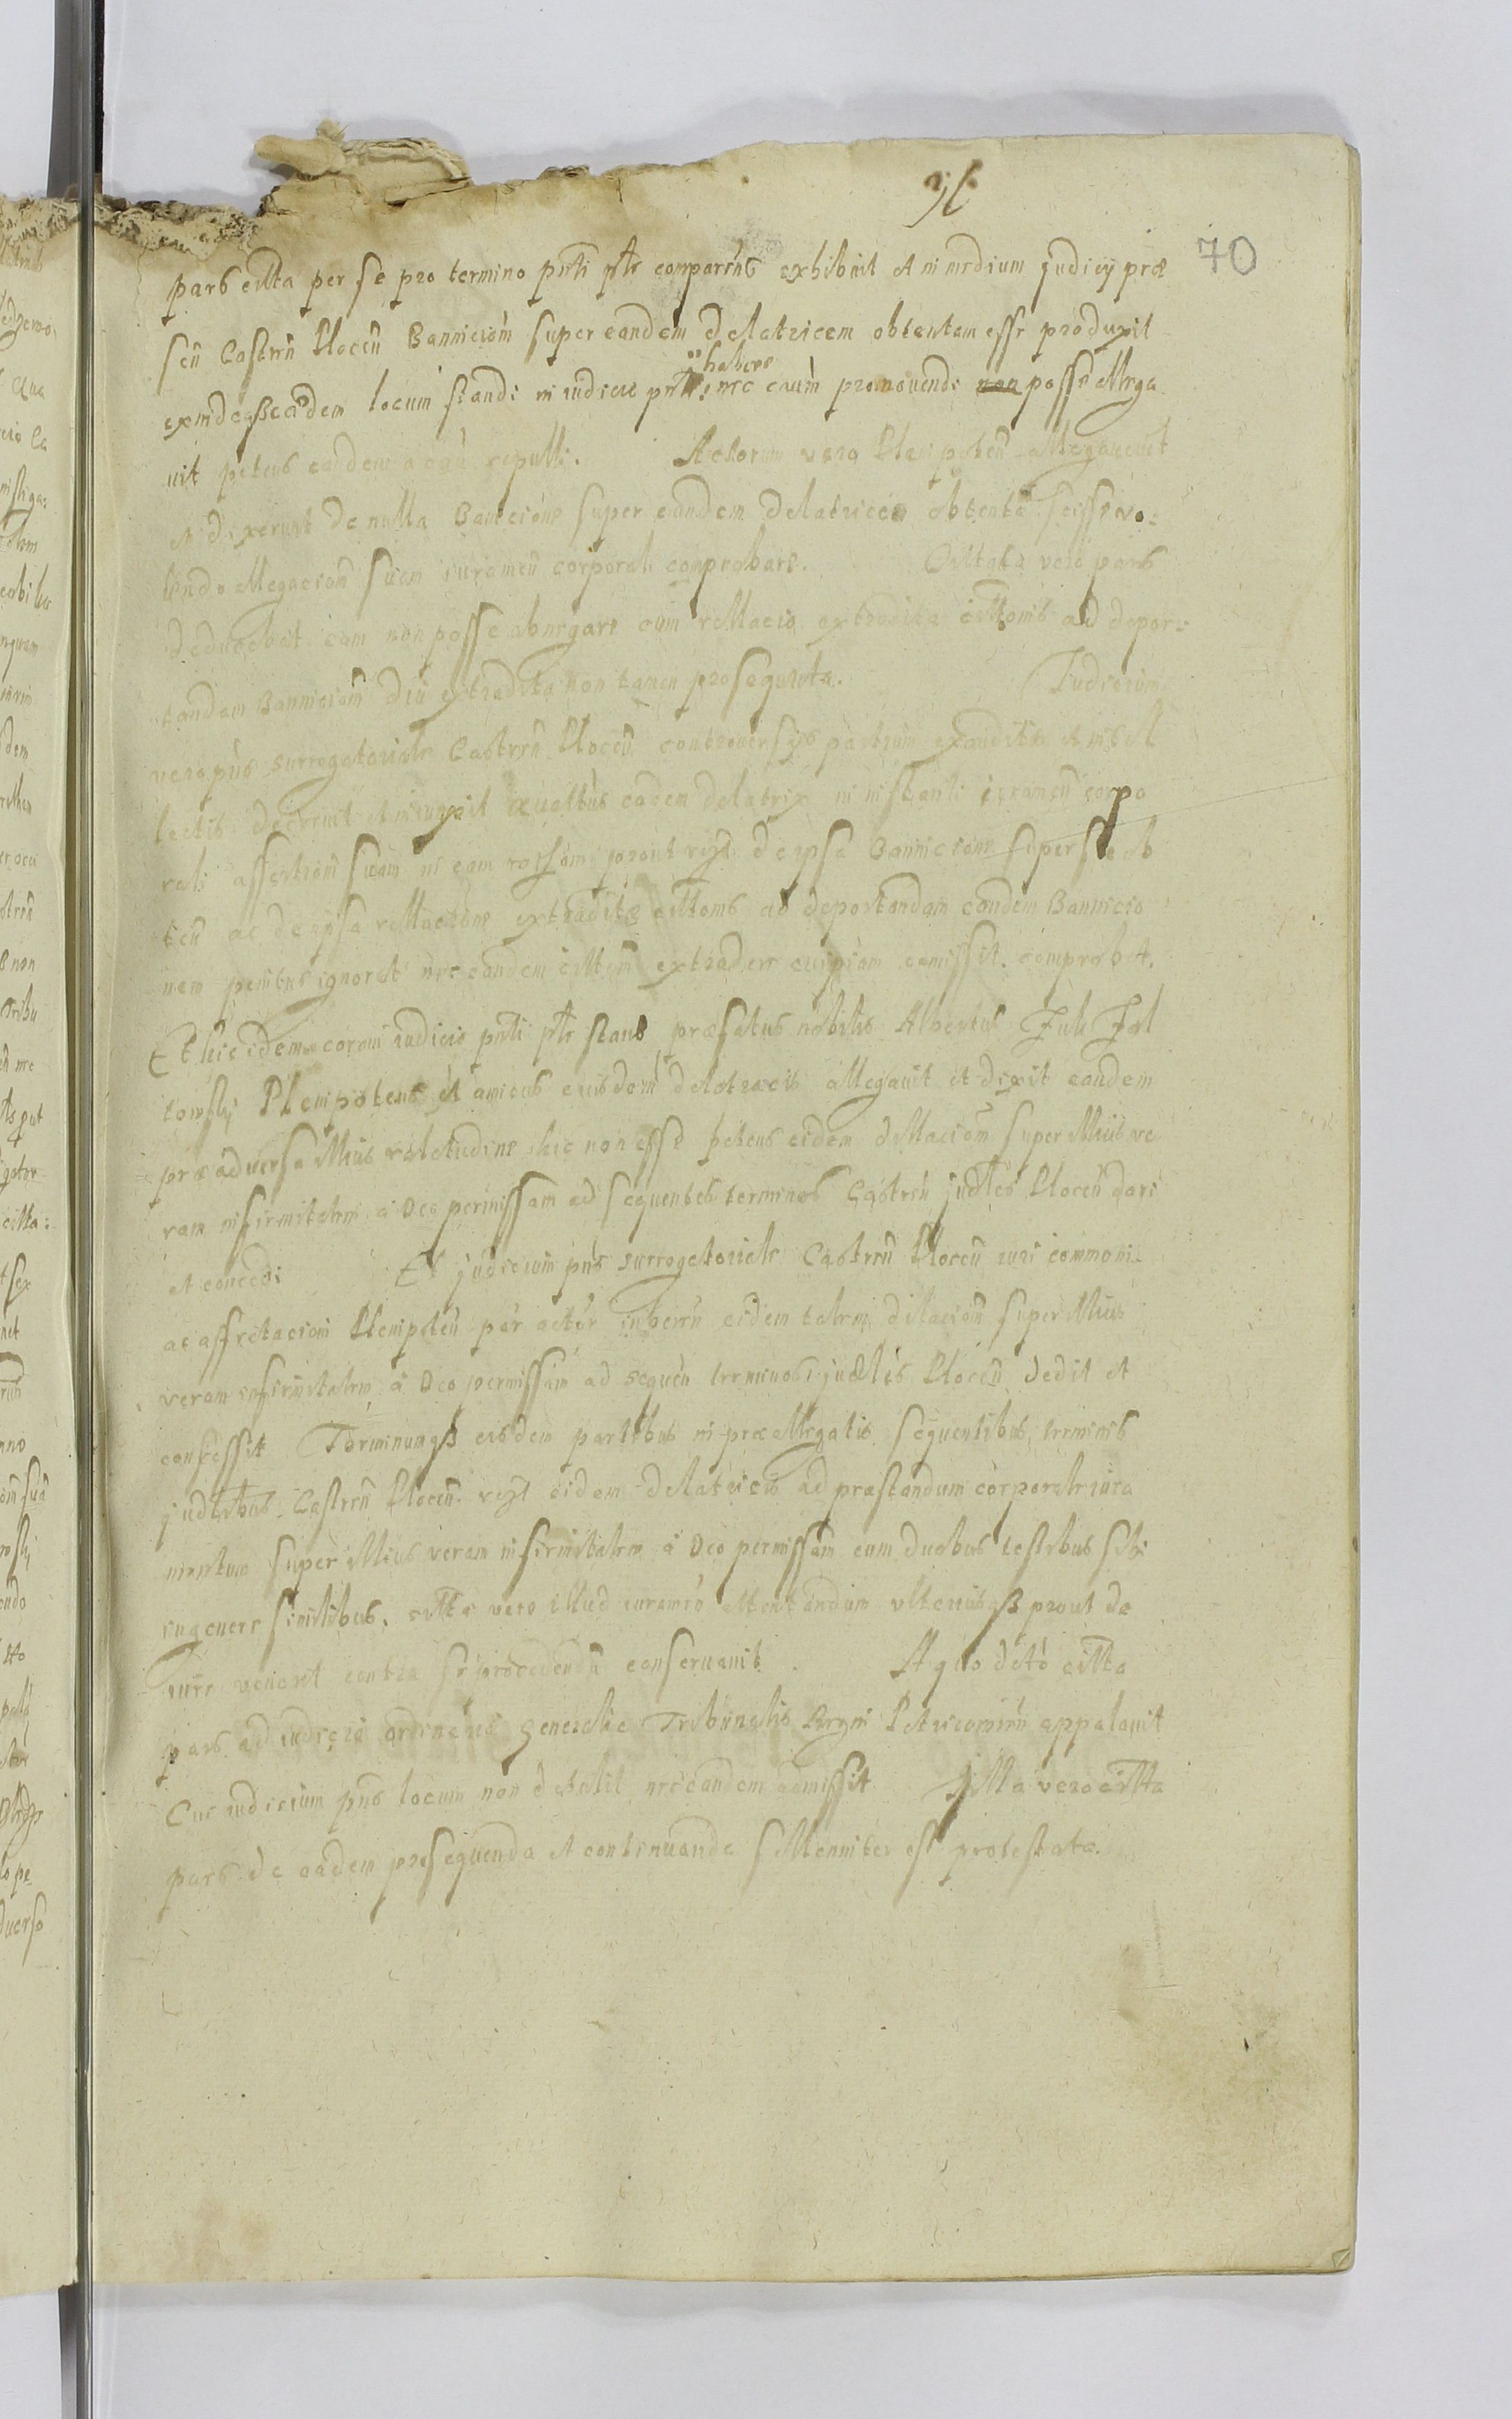 70
pars citta per se pro termino pñti ptr comparens exhibuit et in medium judicÿ præ
señ Castreñ Ploceñ Banniciom̃ super eandem delatricem obtentam esse produxit
habere
exindeqß eadem locum standi in iudicio nec promovendi non posse allega
uit petens eandem repelli. Actorum vero Plenipoteñ allegauerunt
et dixerunt de nulla Bannicione super eandem delatricem obtenta scisse vo:
lendo allegaciom̃ suam iurameñ corporali comprobare. vero pars
deducebat eam non posse abnegare cum rellacio extradita cittonis ad depor:
tandam Banniciom̃ diu extradita non tamen prosequuta. Iudicium
vero pñs surrogatoriale Castreñ Ploceñ controversÿs partium exauditis et
lectis decrevit et iniunxit quattus eadem delatrix in instanti iurameñ corpo
rali assertiom̃ suam in eam prout de ipsa Bannicione super se ob
teñ ac de ipsa rellacione extraditæ cittonis ad deportandam eandem Bannicio
nem penitus ignorat nec eandem extradere cuipiam comissit. comprobet.
Et hic idem coram iudicio pñti ptr stans præfatus nobilis Albertus Jul
towskÿ Plenipotens et amicus eiusdem delatricis allegauit et dixit eandem
præ adversa illius valetudine hic non esse petens eidem dillaciom̃ super illius ve
ram infirmitatem a Deo permissam ad sequentes terminos Castreñ judles Ploceñ dari
et concedi Et judicium pñs surrogatoriale Castreñ Ploceñ iuri communi
ac affectacioni Plenipoteñ par actor inhereñ eidem talem dilaciom̃ super illius
veram infirmitatem a Deo permissam ad sequeñ terminos judles Ploceñ dedit et
concessit Terminumqß eisdem partibus in præallegatis sequentibus terminis
judlibus Castreñ Ploceñ eidem delatricis ad præstandum corporale iura
mentum super illius veram infirmitatem a Deo permissam cum duobus testibus sibi
in genere similibus. citta vero illud iurameñ attentandum vlteriusqß prout de
iure venerit contra se procedendũ conservauit. A quo dcto citta
pars ad iudicia ordinaria generalia Tribunalis Regni Petricovieñ appelauit
Cui iudicium pñs locum non detulit nec eandem admissit Illa vero citta
pars de eadem prosequenda et continuanda sollenniter est protestata.